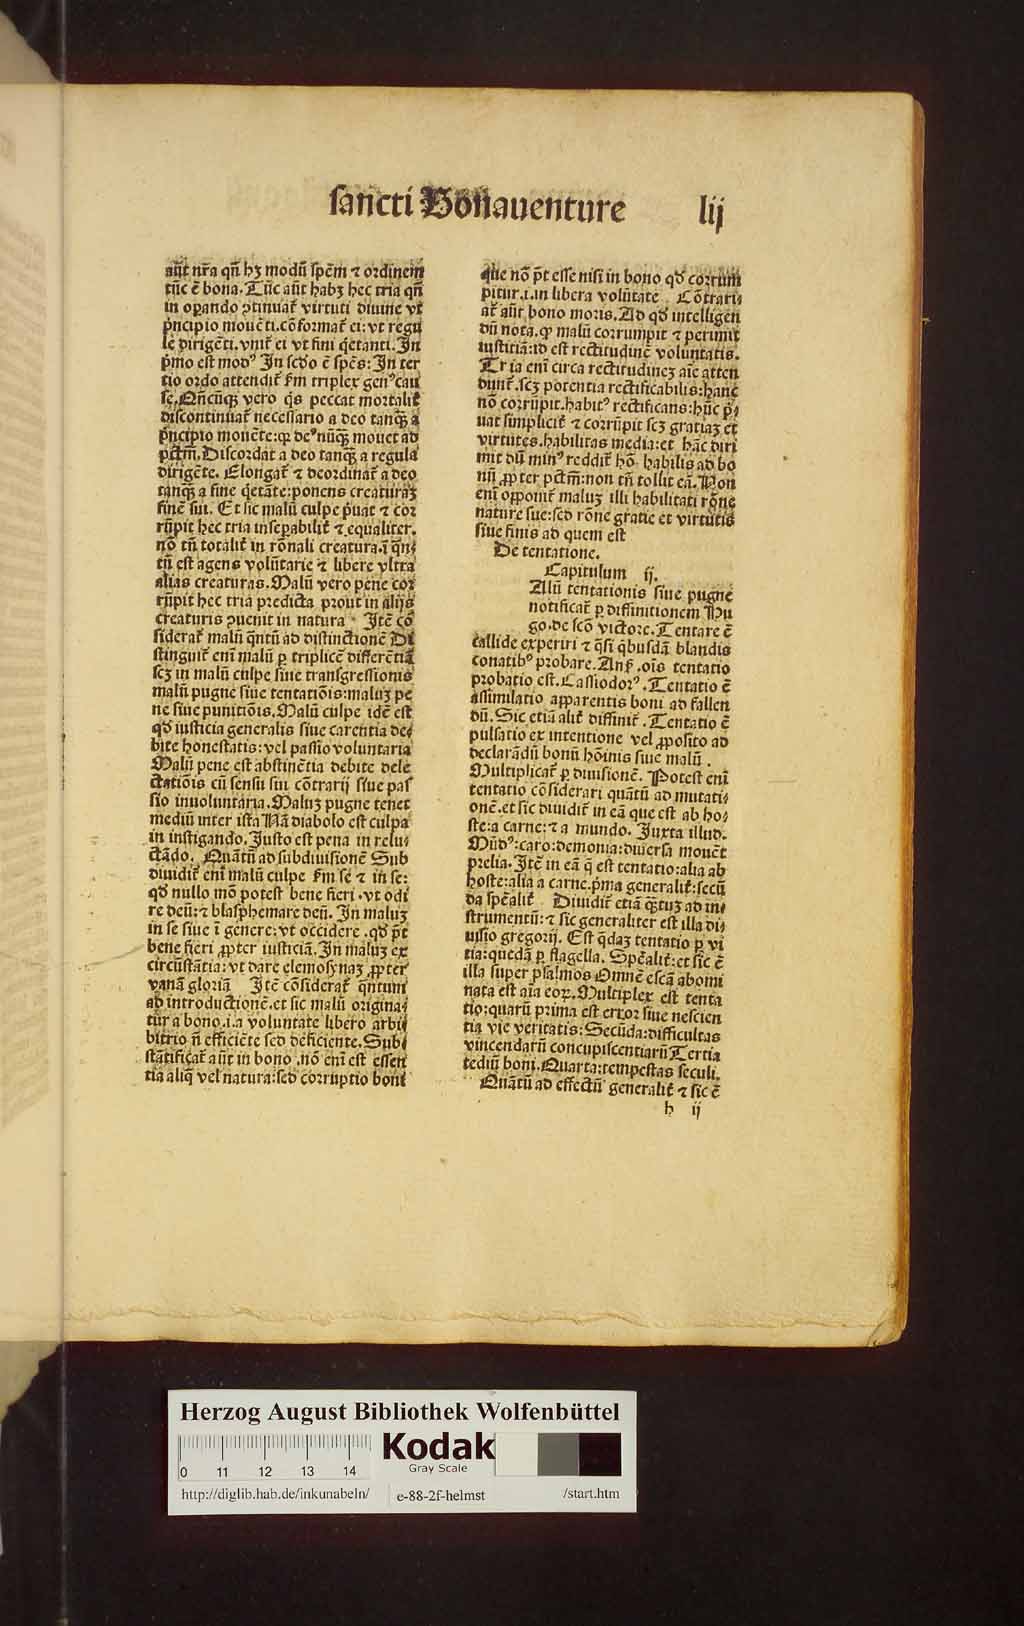 sancti Bonauenture lij
aũt nr̃a qñ hꝫ modũ spẽm ⁊ ordinem
tũc ẽ bona. Tũc aũt habꝫ hec tria qñ
in oꝑando ꝯtinuat᷑ virtuti diuine vt
pͥncipio mouẽti. cõformat᷑ ei: vt regu
le dirigẽti. vnit᷑ ei vt fini q̃etanti. In
pͥmo est modꝰ In scðo ẽ spẽs: In ter
tio ordo attendit᷑ ẜm triplex genꝰ cau
se. Qñcũqꝫ vero q̇s peccat mortalit᷑
discontinuat᷑ necessario a deo tanqꝫ̃ a
pͥncipio mouẽte: qꝛ deꝰ nũqꝫ̃ mouet ad
pctm̃. Discordat a deo tanqꝫ̃ a regula
dirigẽte. Elongat᷑ ⁊ deordinat᷑ a deo
tanqꝫ̃ a fine q̃etãte: ponens creaturaꝫ
finẽ sui. Et sic malũ culpe pͥuat ⁊ cor
rũpit hec tria insepabilit᷑ ⁊ equaliter.
nõ tñ totalit᷑ in rõnali creatura. ĩ q̃n⸗
tũ est agens volũtarie ⁊ libere vltra
alias creaturas. Malũ vero pene cor
rũpit hec tria predicta prout in alijs
creaturis ꝯuenit in natura Itẽ cõ
siderat᷑ malũ q̃ntũ ad distinctionẽ Di
stinguit᷑ enĩ malũ ꝑ triplicẽ differẽtiã
scꝫ in malũ culpe siue transgressionis
malũ pugne siue tentatiõis: maluꝫ pe
ne siue punitiõis. Malũ culpe idẽ est
qð iusticia generalis siue carentia de⸗
bite honestatis: vel passio voluntaria
Malũ pene est abstinẽtia debite dele
ctatiõis cũ sensu sui cõtrarij siue pas
sio inuoluntaria. Maluꝫ pugne tenet
mediũ inter ista Nã diabolo est culpa
in instigando. Justo est pena in relu⸗
ctãdo. Quãtũ ad subdiuisionẽ Sub
diuidit᷑ enĩ malũ culpe ẜm se ⁊ in se:
qð nullo mõ potest bene fieri. vt odi
re deũ: ⁊ blasphemare deũ. In maluꝫ
in se siue ĩ genere: vt occidere. qð pt̃
bene fieri ꝓpter iusticiã. In maluꝫ ex
circũstãtia: vt dare elemosynaꝫ ꝓpter
vanã gloriã Itẽ cõsiderat᷑ q̃ntum
ad introductionẽ. et sic malũ origina⸗
tur a bono. i. a voluntate libero arbi
bitrio ñ efficiẽte sed deficiente. Sub⸗
stãtificat᷑ aũt in bono. nõ enĩ est essen
tia aliq̃ vel natura: sed corruptio boni
que nõ pt̃ esse nisi in bono qð corrum
pitur. i. in libera volũtate Cõtrari⸗
at᷑ aũt bono moris. Ad qð intelligen
dũ nota. ꝙ malũ corrumpit ⁊ perimit
iustitiã: id est rectitudinẽ voluntatis.
Tria enĩ circa rectitudineꝫ aĩe atten
dunt᷑. scꝫ potentia rectificabilis: hanc
nõ corrũpit. habitꝰ rectificans: hũc pͥ⸗
uat simplicit᷑ ⁊ corrũpit scꝫ gratiaꝫ et
virtutes. habilitas media: et hãc diri
mit dũ minꝰ reddit᷑ hõ habilis ad bo
nũ ꝓpter pctm̃: non tñ tollit eã. Non
enĩ opponit᷑ maluꝫ illi habilitati rõne
nature sue: sed rõne gratie et virtutis
siue finis ad quem est
De tentatione.
Capitulum ij.
Allũ tentationis siue pugne
notificat᷑ ꝑ diffinitionem Hu
go. de scõ victore. Tentare ẽ
callide experiri ⁊ q̃si q̇busdã blandis
conatibꝰ probare. Anẜ. oĩs tentatio
probatio est. Cassiodorꝰ. Tentatio ẽ
assimulatio apparentis boni ad fallen
dũ. Sic etiã alit᷑ diffinit᷑. Tentatio ẽ
pulsatio ex intentione vel ꝓposito ad
declarãdũ bonũ hõinis siue malũ.
Multiplicat᷑ ꝑ diuisionẽ. Potest enĩ
tentatio cõsiderari quãtũ ad mutati⸗
onẽ. et sic diuidit᷑ in eã que est ab ho⸗
ste: a carne: ⁊ a mundo. Juxta illud.
Mũdꝰ: caro: demonia: diuersa mouẽt
prelia. Itẽ in eã q̃ est tentatio: alia ab
hoste: alia a carne. pͥma generalit᷑: secũ
da spẽalit᷑ Diuidit᷑ etiã q̃tuꝫ ad in⸗
strumentũ: ⁊ sic generaliter est illa di⸗
uisio gregorij. Est q̃daꝫ tentatio ꝑ vi
tia: quedã ꝑ flagella. Spẽalit᷑: et sic ẽ
illa super psalmos Omnẽ escã abomi
nata est aĩa eoꝝ. Multiplex est tenta
tio: quarũ prima est error siue nescien
tia vie veritatis: Secũda: difficultas
vincendarũ concupiscentiarũ Tertia
tediũ boni. Quarta: tempestas seculi.
Quãtũ ad effectũ generalit᷑ ⁊ sic ẽ
h ij
Herzog August Bibliothek Wolfenbüttel
0 11 12 13 14
Kodak
Gray Scale
http://diglib.hab.de/inkunabeln/ e-88-2f-helmst /start.htm